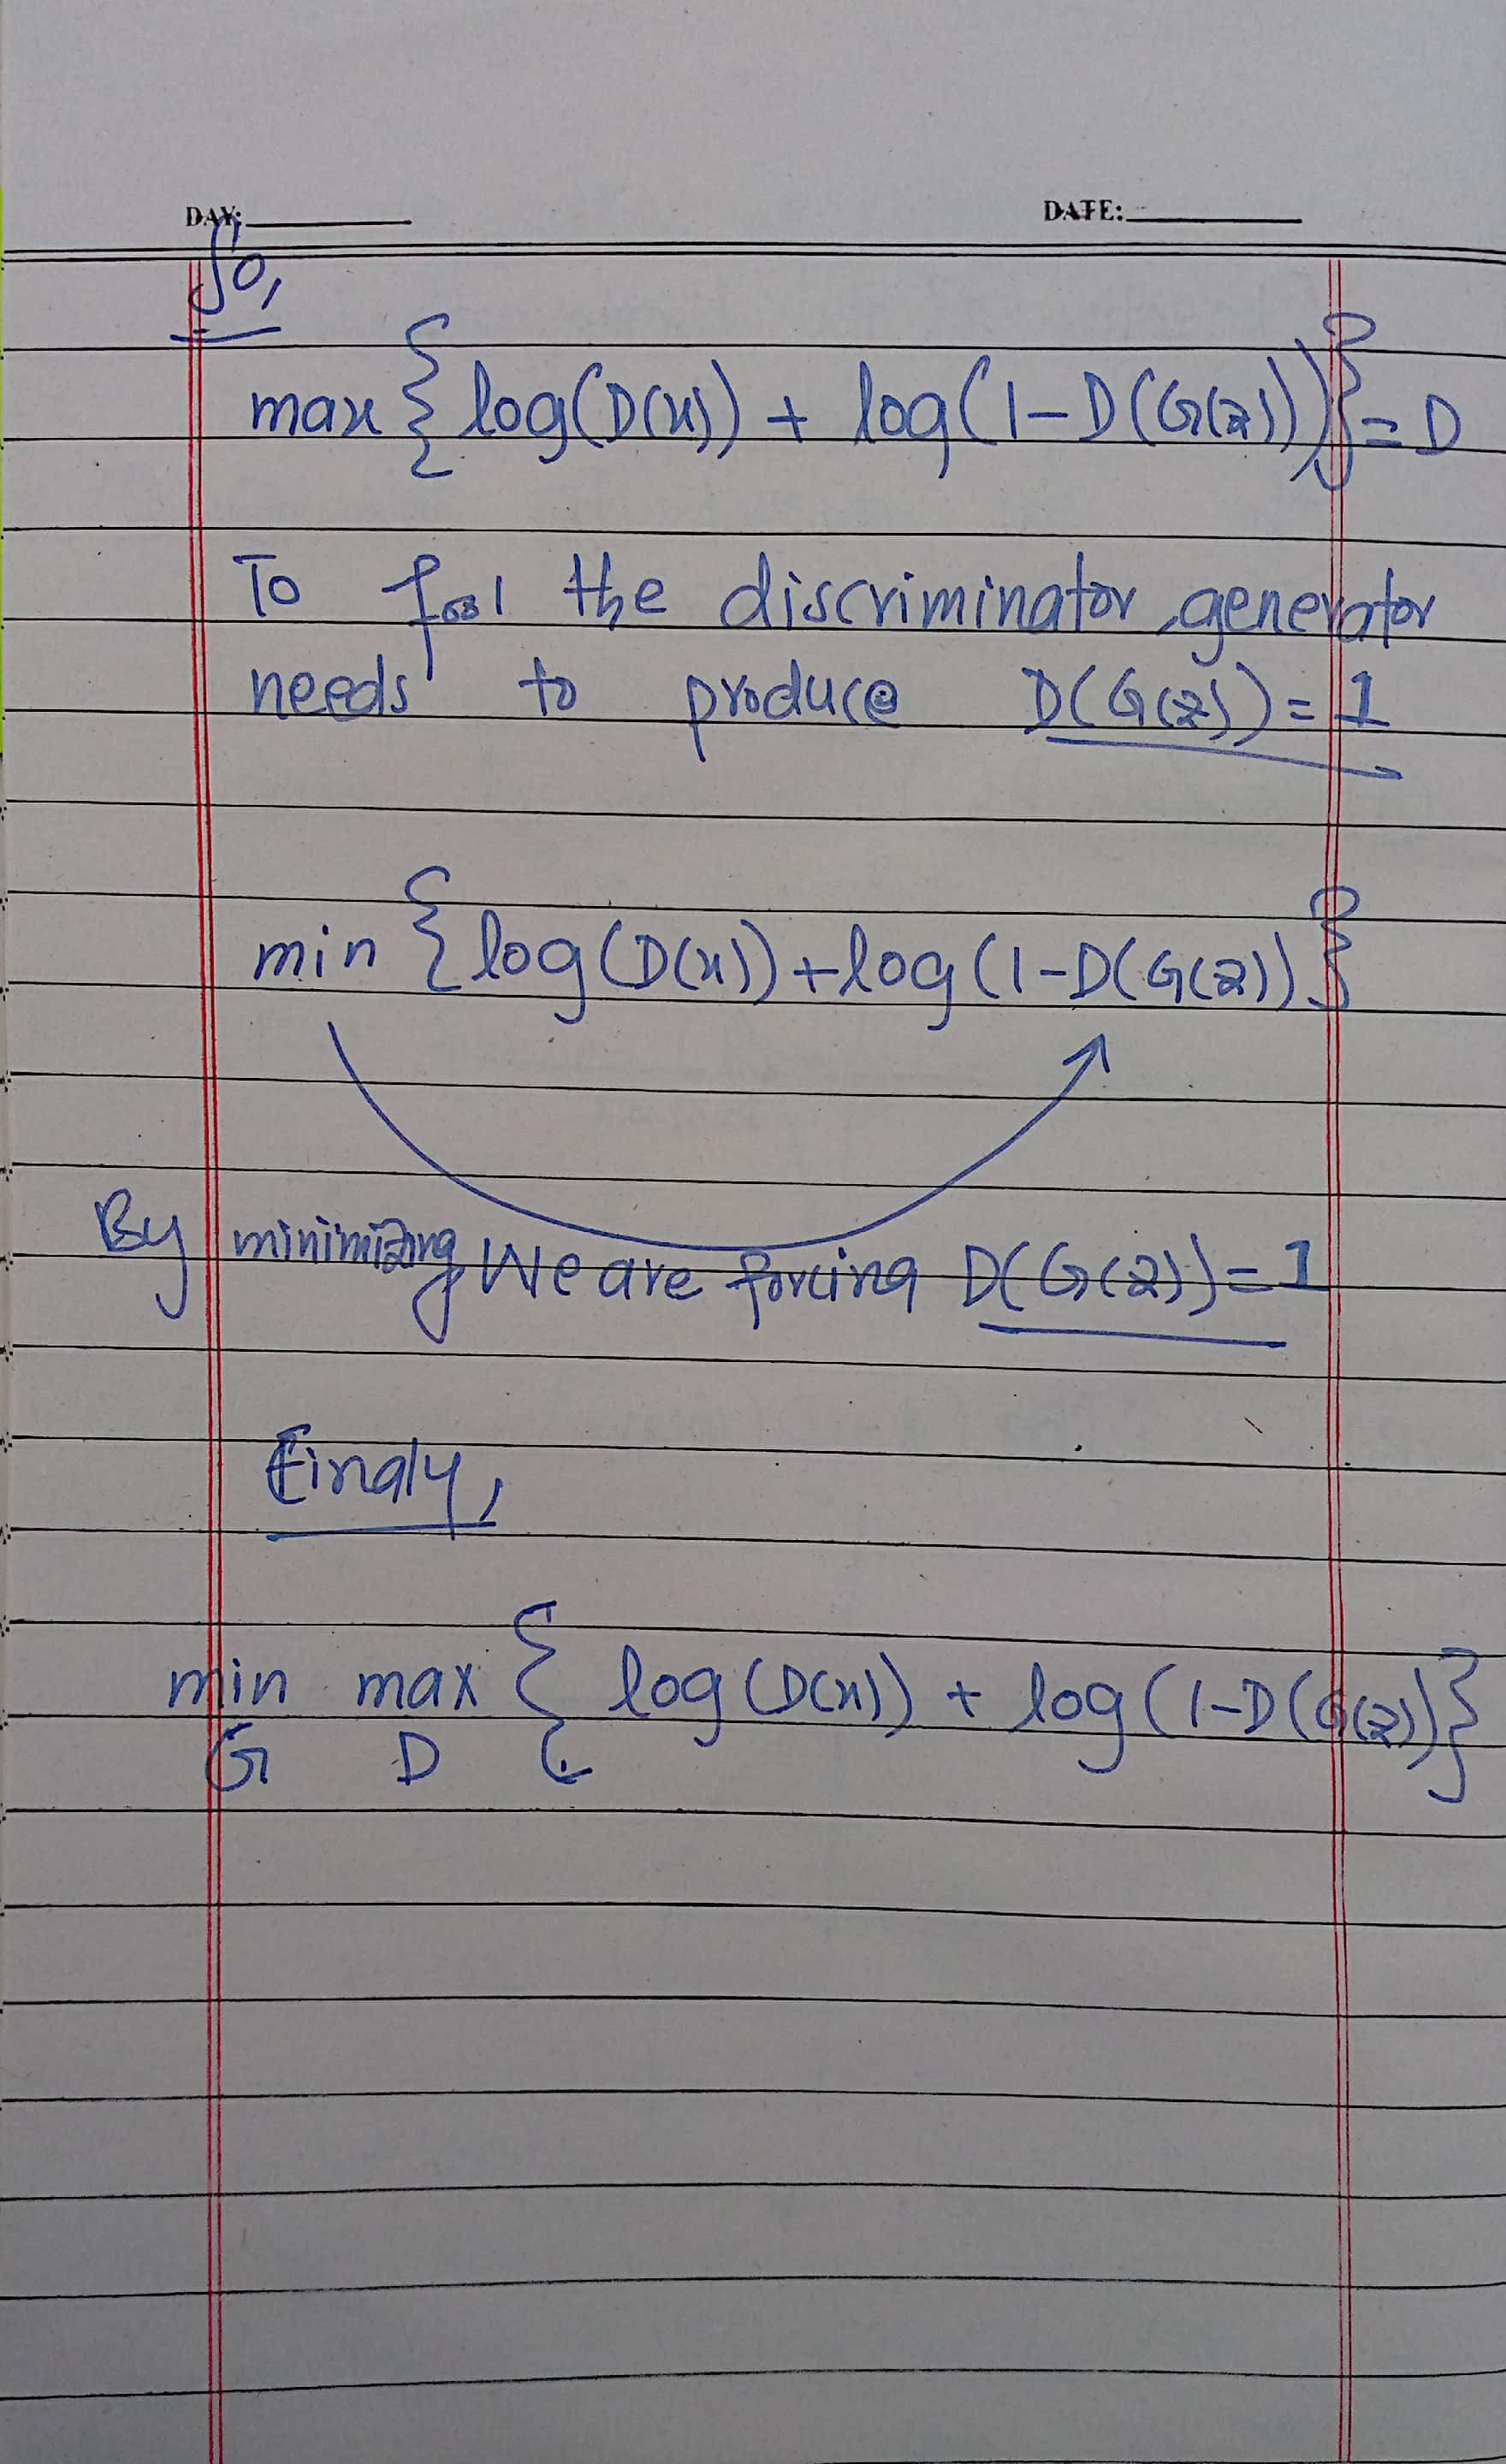 DAY: DATE:
So,
max { log(D(x)) + log(1-D(G(z))) } = D
To fool the discriminator, generator
needs to produce D(G(z)) = 1
min { log(D(x)) + log(1-D(G(z)) }
By minimizing We are forcing D(G(z)) = 1
Finaly,
min max { log(D(x)) + log(1-D(G(z)) }
G D